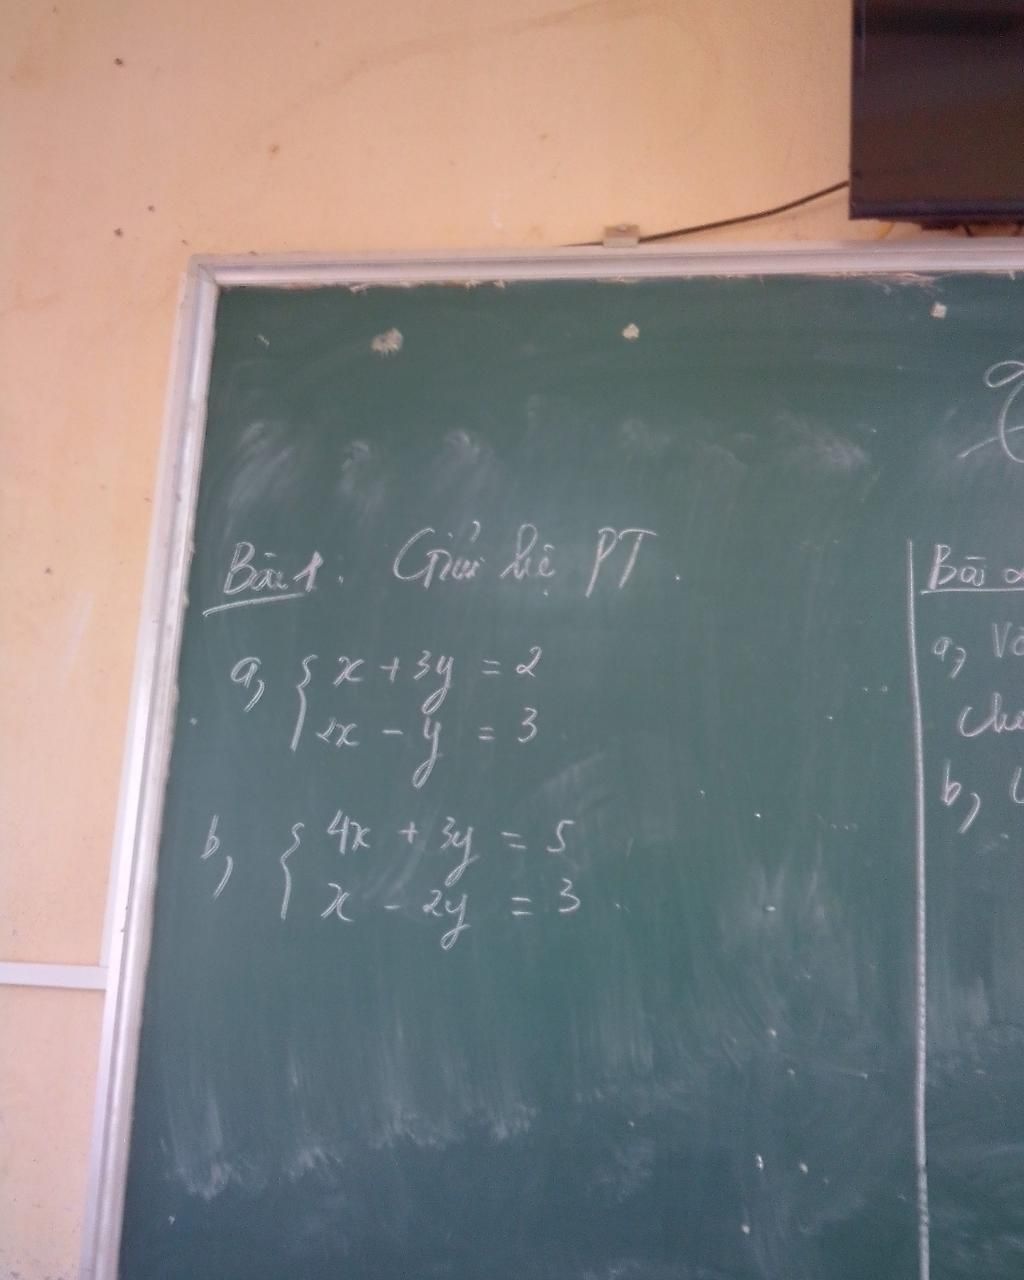 Bài 1. Giải hệ PT.
a, { x + 3y = 2
2x - y = 3
b, { 4x + 3y = 5
x - 2y = 3
Bài
a,
b,